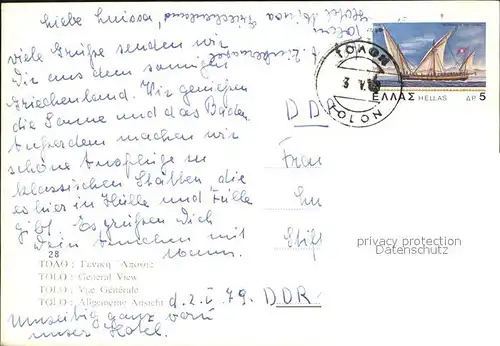 Liebe Luissa,
viele Grüße senden wir
Dir aus dem sonnigen
Griechenland. Wir genießen
die Sonne und das Baden
Außerdem machen wir
schöne Ausflüge zu
klassischen Stätten die
es hier in Hülle und Fülle
gibt. Es grüßen Dich
Dein mit
Mann.
28
ΤΟΛΟ : Γενική Άποψις
TOLO : General View
TOLO : Vue Générale
TOLO : Allgemeine Ansicht
d. 2. 5. 79
Umseitig ganz vorn
unser Hotel.
Hotel Griechenland
Tolon
ΕΛΛΑΣ HELLAS ΔΡ 5
ΤΟΛΟΝ
TOLON
DDR
Frau
Lu
Stift
privacy protection
Datenschutz
DDR